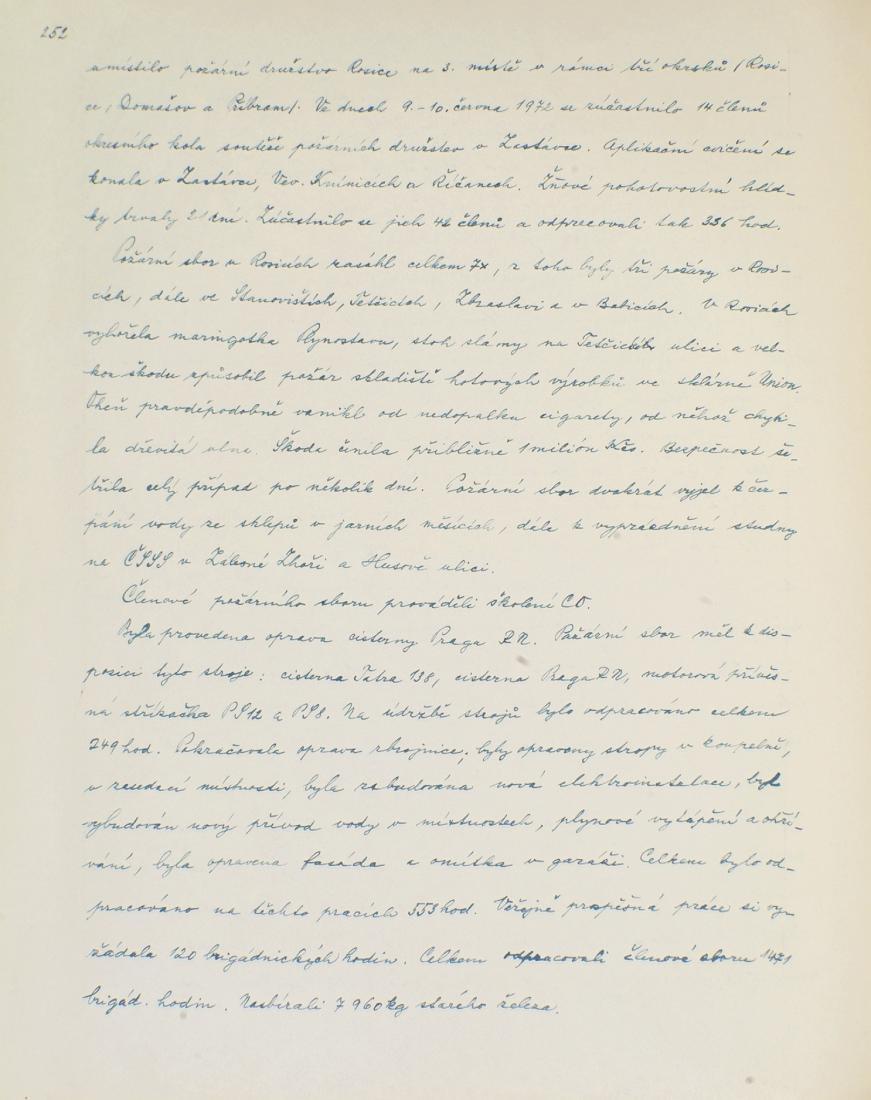 252
umístilo požární družstvo Rosice na 3. místě v rámci tří okrsků /Rosi-
ce, Domašov a Příbram/. Ve dnech 9.-10. června 1972 se zúčastnilo 14 členů
okresního kola soutěže požárních družstev v Zastávce. Aplikační cvičení se
konala v Zastávce, Vev. Knínicích a Říčanech. Žňové pohotovostní hlíd-
ky trvaly 21 dní. Zúčastnilo se jich 42 členů a odpracovali tak 336 hod.
Požární sbor v Rosicích zasáhl celkem 7x, z toho byly tři požáry v Rosi-
cích, dále ve Stanovištích, Tetčicích, Zbraslavi a v Babicích. V Rosicích
vyhořela maringotka Plynostavu, stoh slámy na Tetčické ulici a vel-
kou škodu způsobil požár skladiště hotových výrobků ve sklárně Union.
Oheň pravděpodobně vznikl od nedopalku cigarety, od něhož chyti-
la dřevitá vlna. Škoda činila přibližně 1 milión Kčs. Bezpečnost še-
třila celý případ po několik dní. Požární sbor dvakrát vyjel k čer-
pání vody ze sklepů v jarních měsících, dále k vyprázdnění studny
na ČSSS v Zálesné Zhoři a Husově ulici.
Členové požárního sboru prováděli školení CO.
Byla provedena oprava cisterny Praga RN. Požární sbor měl k dis-
posici tyto stroje: cisterna Tatra 138, cisterna Praga RN, motorová přívěs-
ná stříkačka PS12 a PS8. Na údržbě strojů bylo odpracováno celkem
249 hod. Pokračovala oprava zbrojnice; byly opraveny stropy v koupelně,
v zasedací místnosti, byla zabudována nová elektroinstalace, byl
vybudován nový přívod vody v místnostech, plynové vytápění a ohří-
vání, byla opravena fasáda a omítka v garáži. Celkem bylo od-
pracováno na těchto pracích 553 hod. Veřejně prospěšná práce si vy-
žádala 120 brigádnických hodin. Celkem odpracovali členové sboru 1471
brigád. hodin. Nasbírali 7 960 kg starého železa.